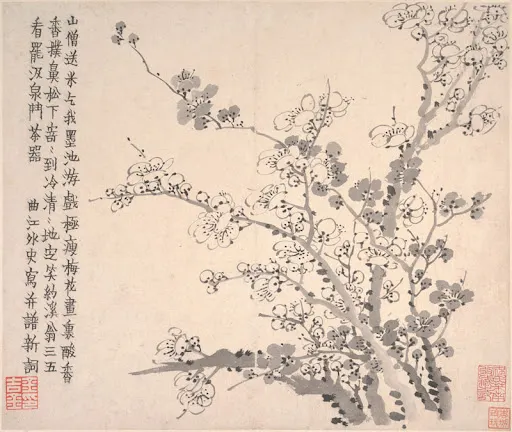 山僧送米乞我墨池游戲極瘦梅花畫裏酸香
香撲鼻松下寄〻到冷清〻地定笑約溪翁三五
看罷汲泉鬥茶器 曲江外史寫并譜新詞